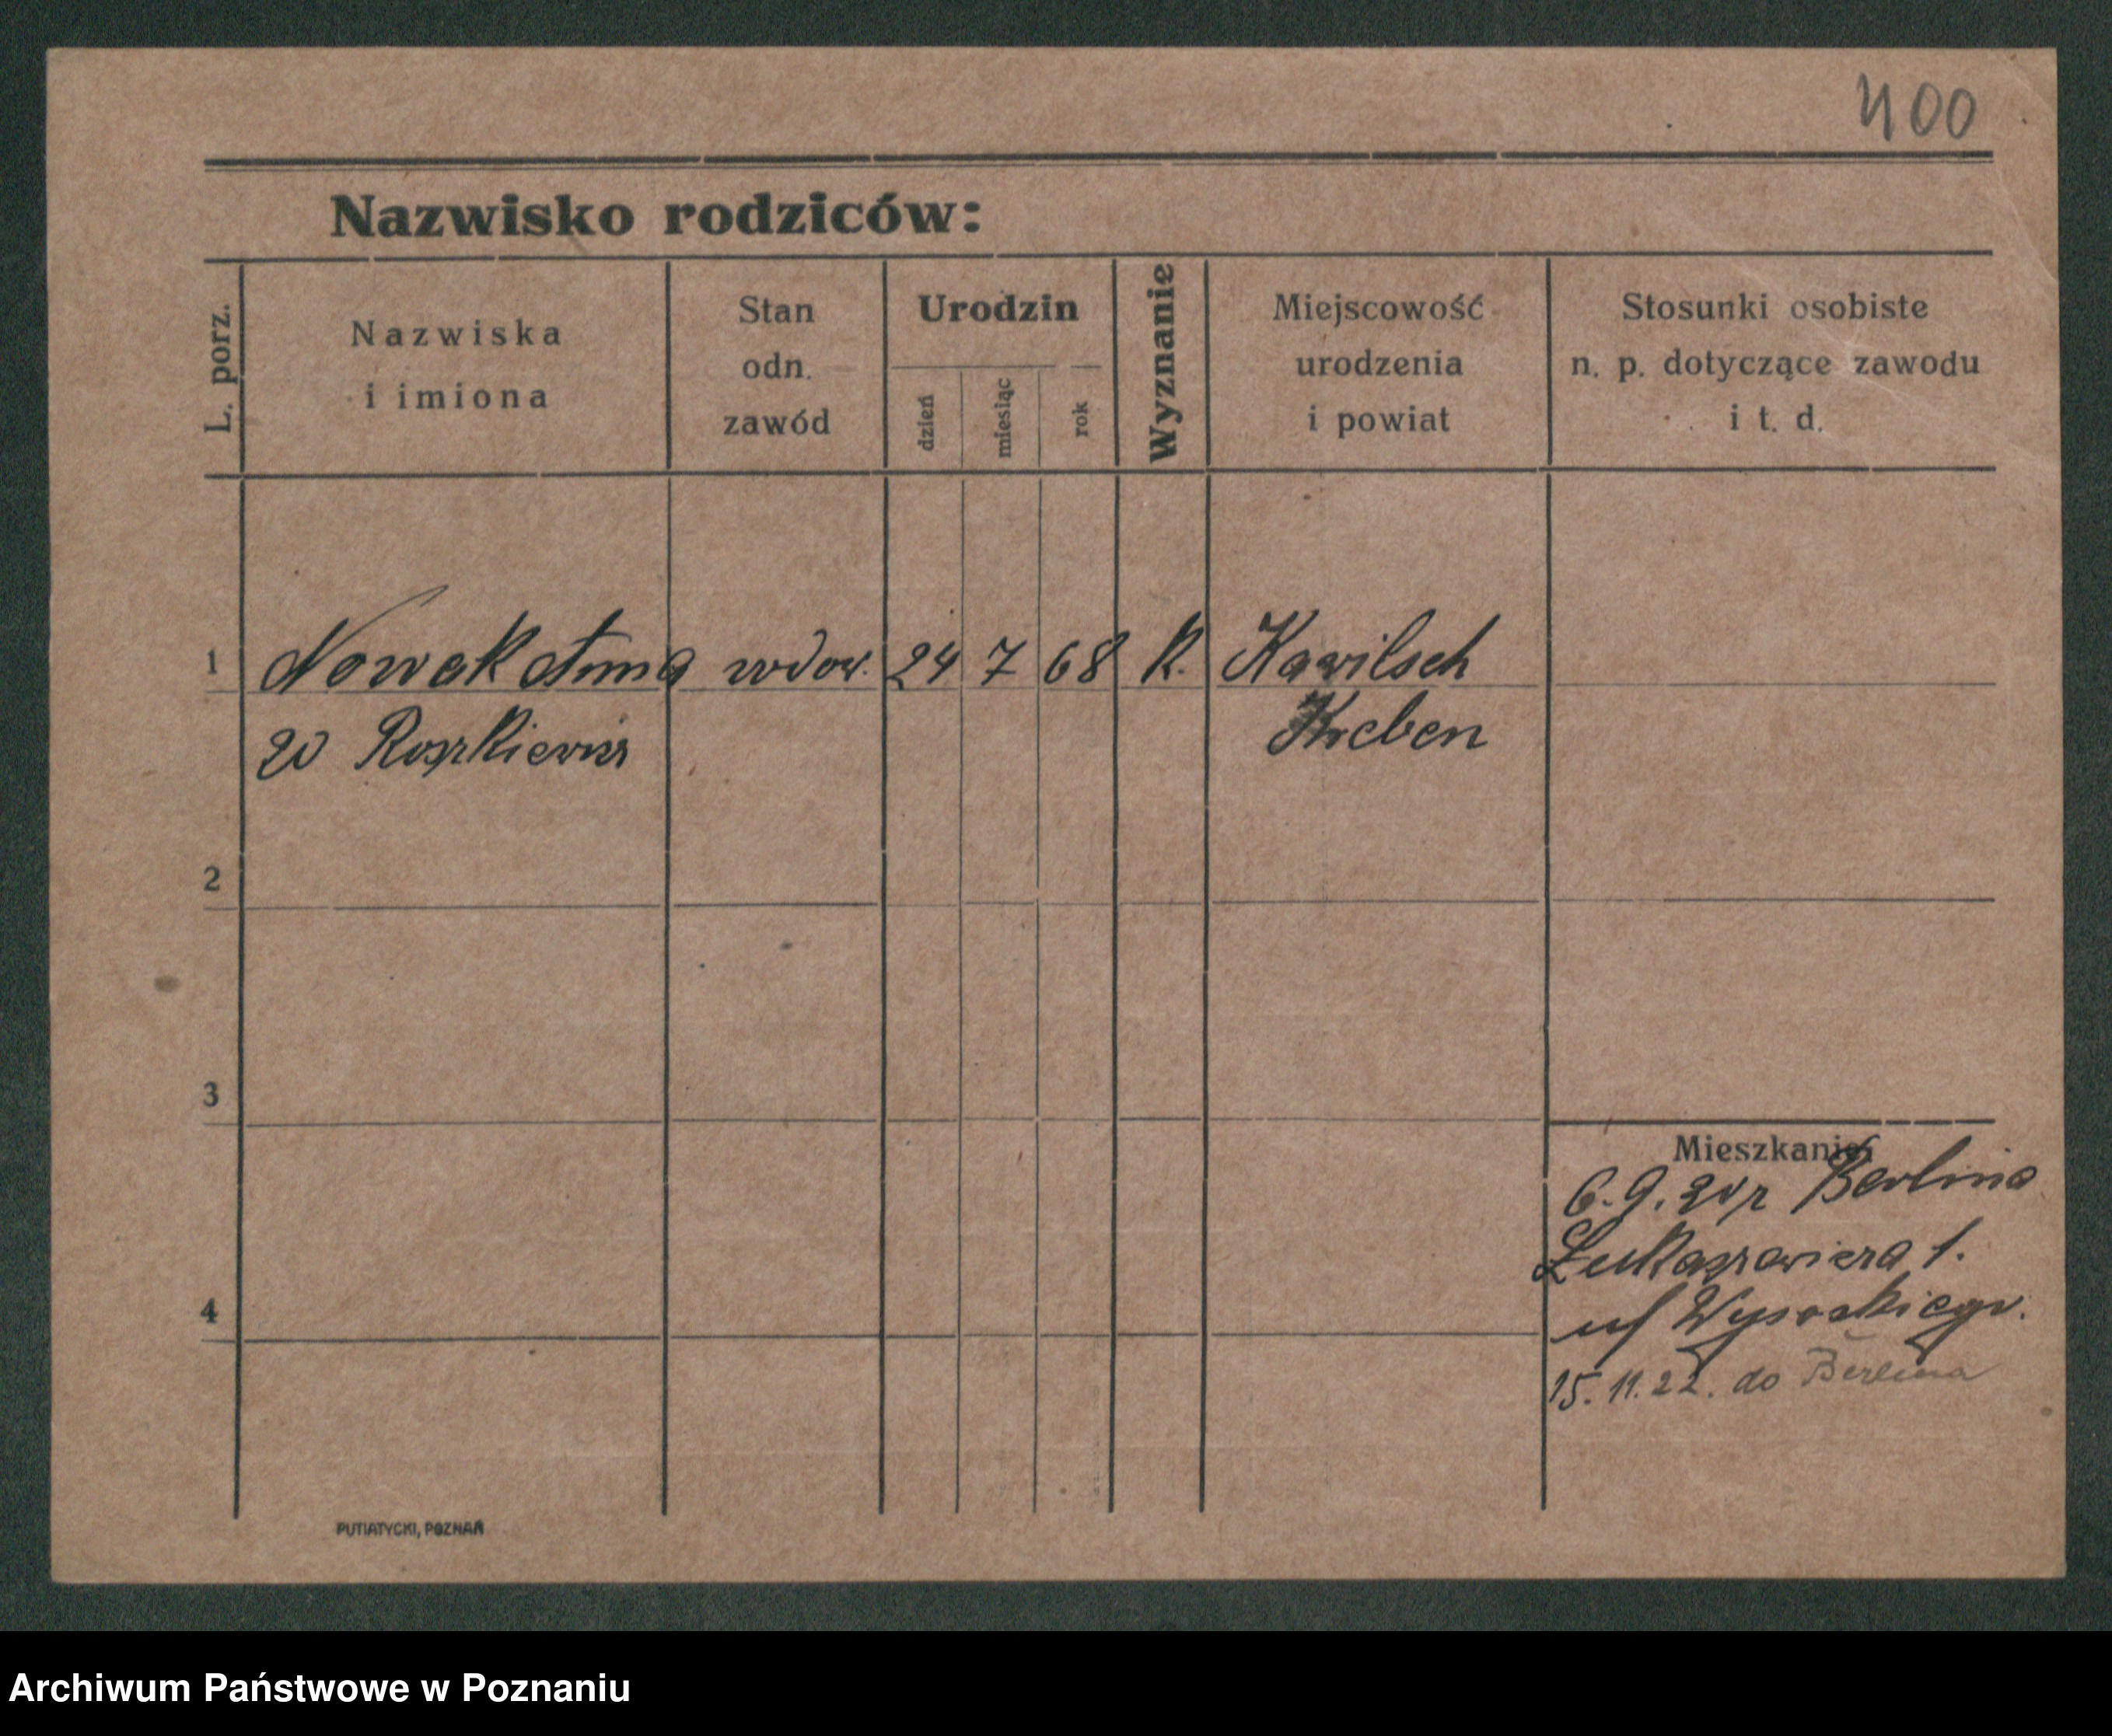 400
Nazwisko rodziców:
L. porz.
Nazwiska
i imiona
Stan
odn.
zawód
Urodzin
dzień
miesiąc
rok
Wyznanie
Miejscowość
urodzenia
i powiat
Stosunki osobiste
n. p. dotyczące zawodu
i t. d.
1 Nowak Anna wdow. 24 7 68 K. Kawilsch
Kreben
2
3
4
Mieszkanie
6.9. Berlina
Łukaszewicza 1.
Wysockiego.
15.11.22. do Berlina
PUTIATYCKI, POZNAŃ
Archiwum Państwowe w Poznaniu